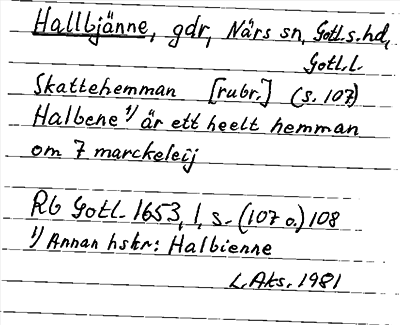 Hallbjänne, gdr, Närs sn, Gotl.s.hd,
Gotl.l.
Skattehemman [rubr.] (s. 107)
Halbene 1/ är ett heelt hemman
om 7 marckeleij
Rb Gotl. 1653, 1, s. (107 o.) 108
1/ Annan hskr: Halbienne
L.Aks. 1981